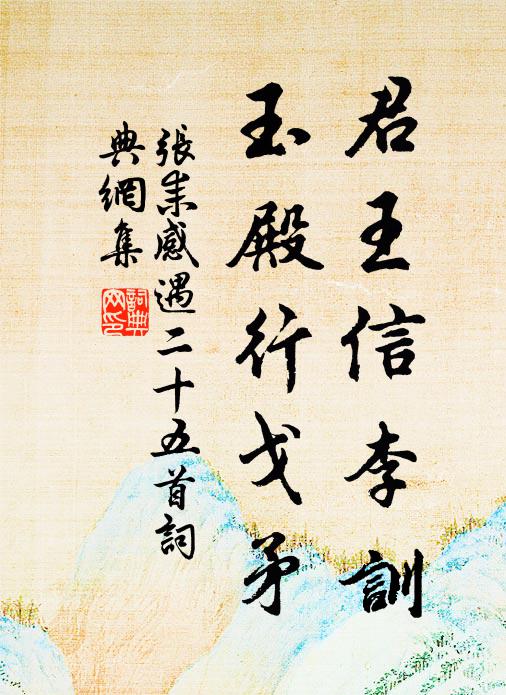 君王信李訓
玉殿行戈矛
張耒感遇二十五首詞
典網集
詞典
网印